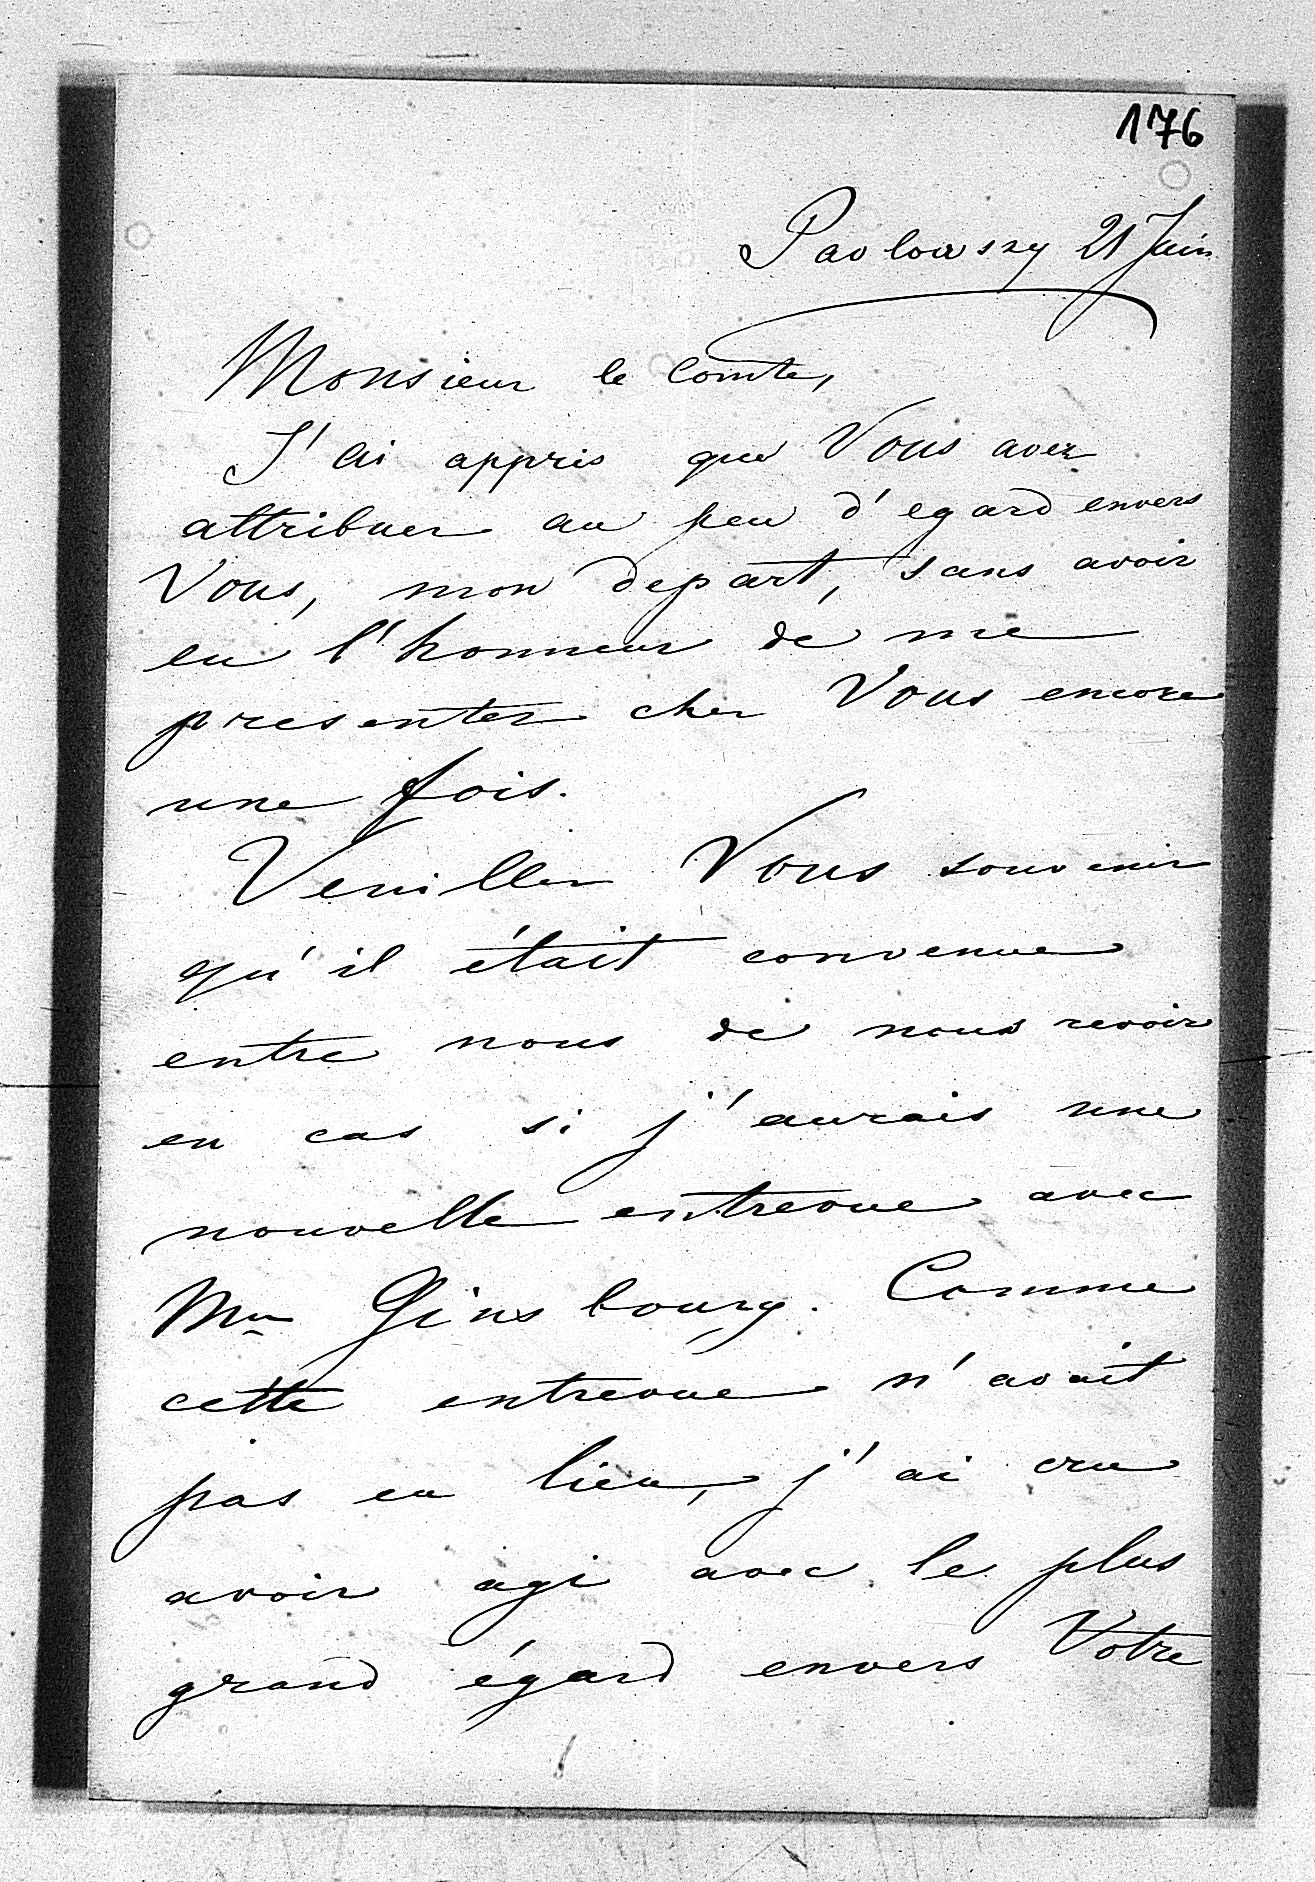 176
Pavlowsky 21 Juin
Monsieur le Comte,
J'ai appris que Vous avez
attribuer au peu d'egard envers
Vous, mon depart, sans avoir
eu l'honneur de me
presenter chez Vous encore
une fois.
Veuillez Vous souvenir
qu'il était convenue
entre nous de nous revoir
en cas si j'aurais une
nouvelle entrevue avec
Mme Ginsbourg. Comme
cette entrevue n'avait
pas eu lieu, j'ai cru
avoir agi avec le plus
grand égard envers Votre